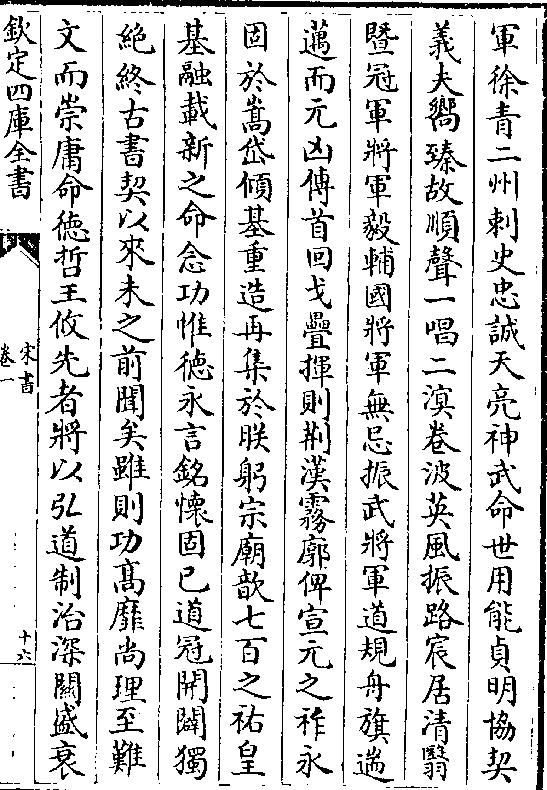 軍徐青二州刺史忠誠天亮神武命世用能貞明協契
義夫嚮臻故順聲一唱二溟卷波英風振路宸居清翳
暨冠軍將軍毅輔國將軍無忌振武將軍道規舟旗遄
邁而元凶傳首回戈疊揮則荆漢霧廓俾宣元之祚永
固於嵩岱傾基重造再集於朕躬宗廟歆七百之祐皇
基融載新之命念功惟德永言銘懷固已道冠開闢獨
絶終古書契以來未之前聞矣雖則功髙靡尚理至難
文而崇庸命德哲王攸先者將以弘道制治深關盛衰
欽定四庫全書
宋書
卷一
十六